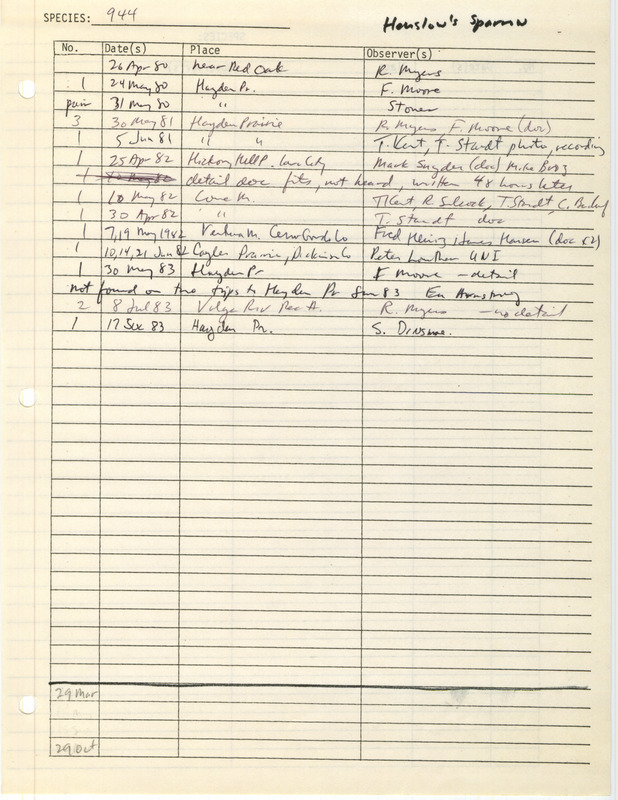 SPECIES: 944 Henslow's Sparrow
No. Date(s) Place Observer(s)
26 Apr 80 near Red Oak R. Myers
1 24 May 80 Hayden Pr. F. Moore
pair 31 May 80 " Stoner
3 30 May 81 Hayden Prairie R. Myers F. Moore (doc)
1 5 Jun 81 " " T. Kent, T. Staudt photo, recording
1 25 Apr 82 Hickory Hill P. Mark Snyder (doc) Mike
1 detail doc fits, not heard, written 48 hours later
1 10 May 82 Cone M. T Kent R Silcock, T Staudt, C.
1 30 Apr 82 " T. Staudt doc
1 7,19 May 1982 Ventura M. Cerro Gordo Co Fred Heinz, James Hansen (doc x2)
1 10,14,21 Jun 82 Cayler Prairie, Dickinson Co Peter Lowther UNI
1 30 May 83 Hayden Pr F Moore – detail
not found on two trips to Hayden Pr Jun 83 Armstrong
2 8 Jul 83 Volga Riv Rec A. R. Myers – no detail
1 17 83 Hayden Pr. S. Dinsmore.
29 Mar
29 Oct